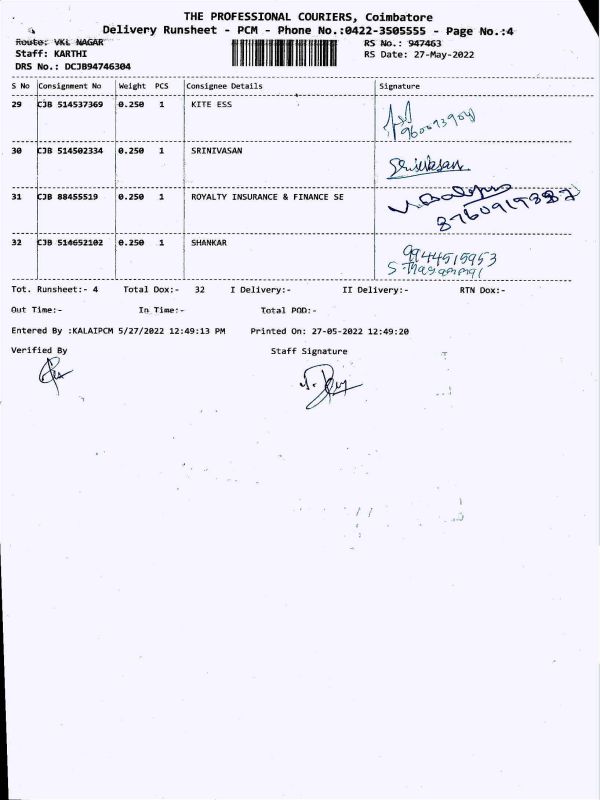 THE PROFESSIONAL COURIERS, Coimbatore
Delivery Runsheet - PCM - Phone No.:0422-3505555 - Page No.:4
Route: VKL NAGAR
RS No.: 947463
Staff: KARTHI
RS Date: 27-May-2022
DRS No.: DCJB94746304
S No Consignment No Weight PCS Consignee Details Signature
29 CJB 514537369 0.250 1 KITE ESS
30 CJB 514502334 0.250 1 SRINIVASAN
31 CJB 88455519 0.250 1 ROYALTY INSURANCE & FINANCE SE
8760919887
32 CJB 514652102 0.250 1 SHANKAR
9944515953
Tot. Runsheet:- 4 Total Dox:- 32 I Delivery:- II Delivery:- RTN Dox:-
Out Time:- In Time:- Total POD:-
Entered By :KALAIPCM 5/27/2022 12:49:13 PM Printed On: 27-05-2022 12:49:20
Verified By Staff Signature